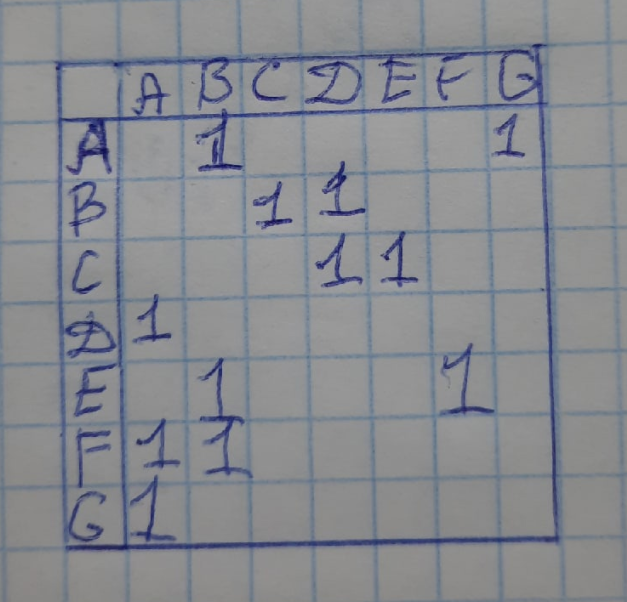 A B C D E F G
A 1 1
B 1 1
C 1 1
D 1
E 1 1
F 1 1
G 1